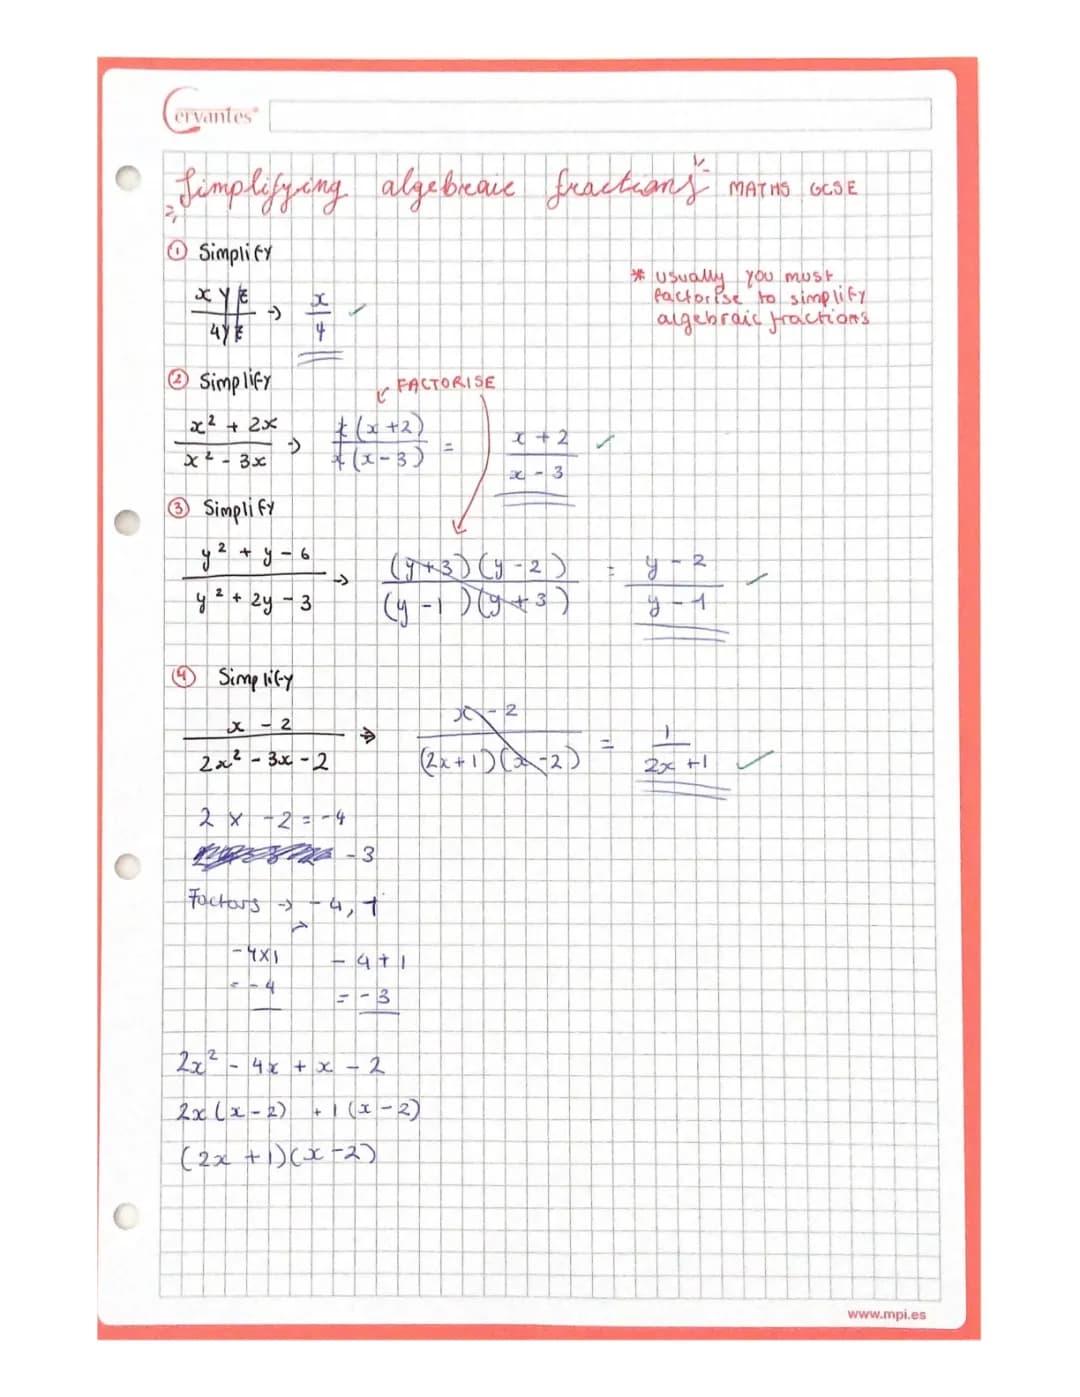 Cervantes®
Simplifying algebraic fractions MATHS GCSE
① Simplify
* usually you must
factorise to simplify
algebraic fractions
xyz / 4yz → x / 4 ✓
② Simplify
FACTORISE
x² + 2x / x² - 3x → x(x+2) / x(x-3) = x + 2 / x - 3 ✓
③ Simplify
y² + y - 6 / y² + 2y - 3 → (y+3)(y-2) / (y-1)(y+3) = y - 2 / y - 1 ✓
④ Simplify
x - 2 / 2x² - 3x - 2 → x - 2 / (2x+1)(x-2) = 1 / 2x+1 ✓
2 x -2 = -4
-3
Factors → -4, 1
-4x1 -4+1
= -4 = -3
2x² - 4x + x - 2
2x(x-2) +1(x-2)
(2x+1)(x-2)
www.mpi.es